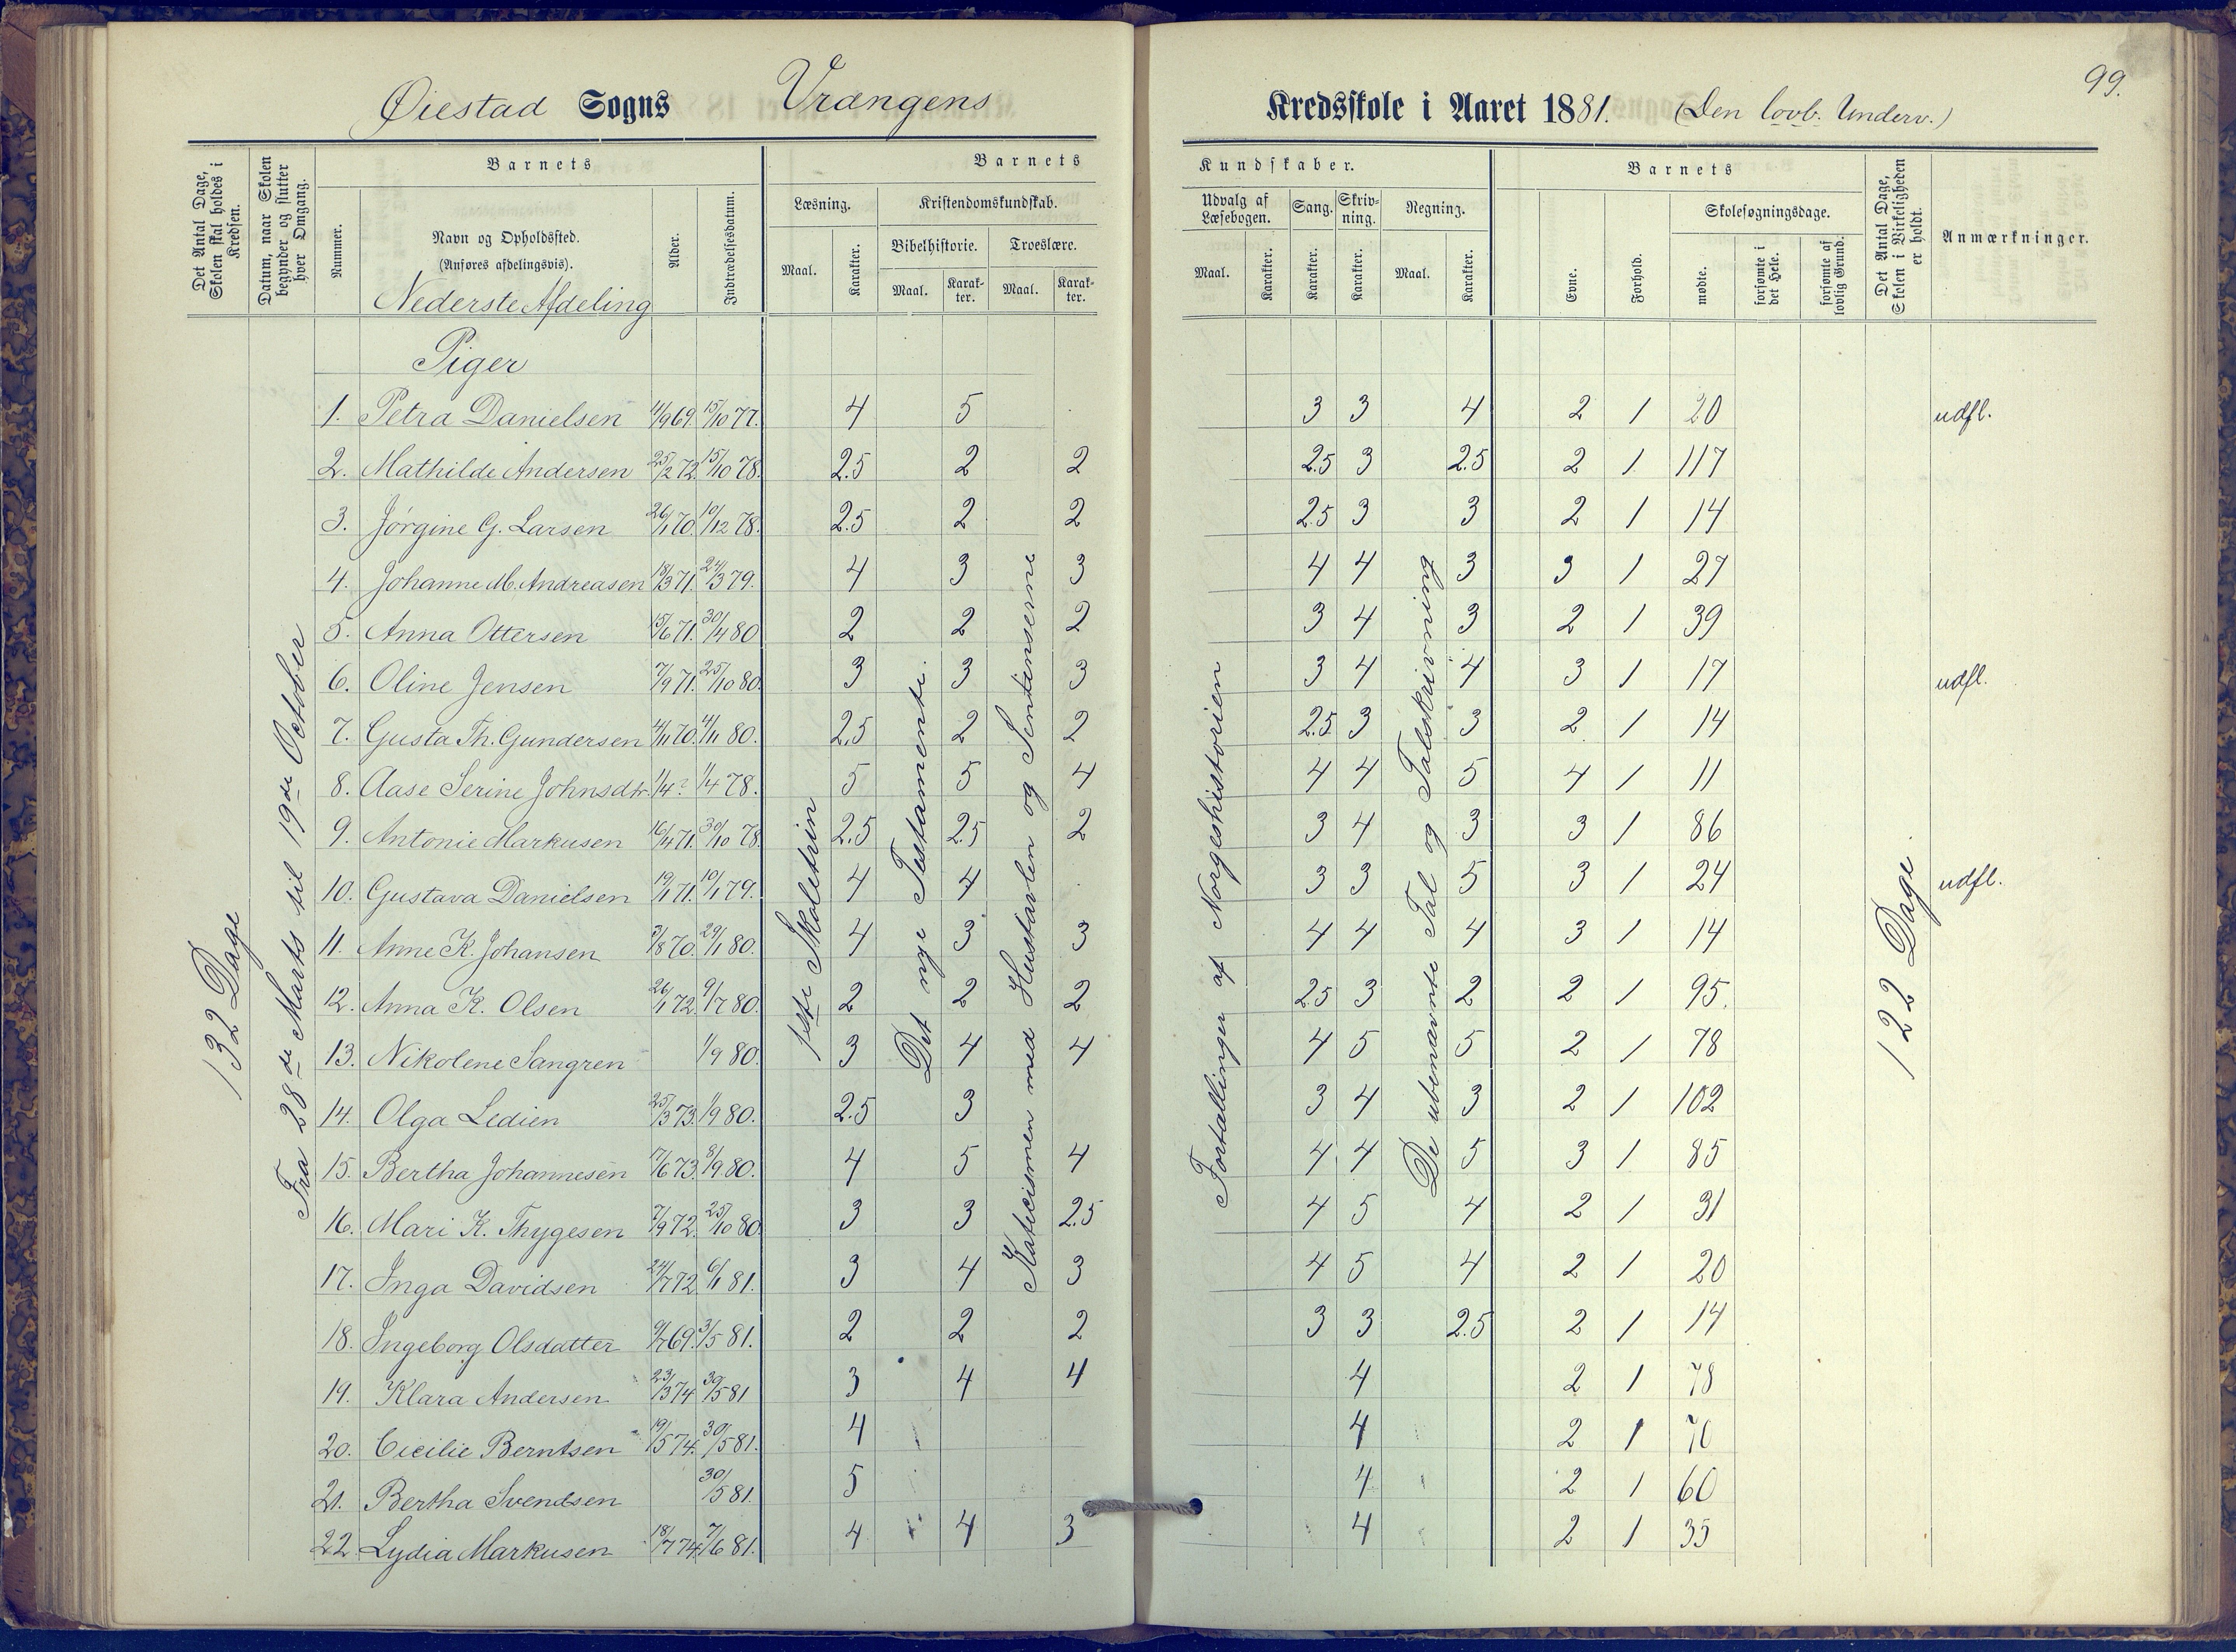 99.
Øiestad Sogns Vrangens Kredsskole i Aaret 1881. (Den lovb. Underv.)
Det Antal Dage, Skolen skal holdes i Kredsen.
Datum, naar Skolen begynder og slutter hver Omgang.
Barnets
Nummer.
Navn og Opholdssted.
(Anføres afdelingsvis).
Nederste Afdeling
Alder.
Indtrædelsesdatum.
Barnets Kundskaber.
Læsning.
Maal. Karakter.
Kristendomskundskab.
Bibelhistorie. Troeslære.
Maal. Karakter. Maal. Karakter.
Udvalg af Læsebogen.
Maal. Karakter.
Sang. Karakter.
Skrivning. Karakter.
Regning.
Maal. Karakter.
Barnets
Evne. Forhold.
Skolesøgningsdage.
mødte. forsømte i det Hele. forsømte af lovlig Grund.
Det Antal Dage, Skolen i Virkeligheden er holdt.
Anmærkninger.
132 Dage
Fra 28de Marts til 19de October
1ste Skoletrin
Det nye Testamente.
Katecismen med Hustavlen og Sentenserne
Fortællinger af Norgeshistorien
De ubenævnte Tal og Talskrivning
122 Dage
Piger
1. Petra Danielsen 11/9 69. 15/10 77. 4 5 3 3 4 2 1 20 udfl.
2. Mathilde Andersen 25/2 72. 15/10 78. 2.5 2 2 2.5 3 2.5 2 1 117
3. Jørgine G. Larsen 26/1 70. 10/12 78. 2.5 2 2 2.5 3 3 2 1 14
4. Johanne M. Andreasen 18/3 71. 24/3 79. 4 3 3 4 4 3 3 1 27
5. Anna Ottersen 15/6 71. 30/4 80 2 2 2 3 4 3 2 1 39
6. Oline Jensen 7/9 71. 25/10 80. 3 3 3 3 4 4 3 1 17 udfl.
7. Gusta Th. Gundersen 4/11 70. 4/11 80. 2.5 2 2 2.5 3 3 2 1 14
8. Aase Serine Johnsdtr. 1/4 ? 1/4 78. 5 5 4 4 4 5 4 1 11
9. Antonie Markusen 16/4 71. 30/10 78. 2.5 2.5 2 3 4 3 3 1 86
10. Gustava Danielsen 19/1 71. 10/1 79. 4 4 3 3 5 3 1 24 udfl.
11. Anne K. Johansen 3/8 70. 29/1 80. 4 3 3 4 4 4 3 1 14
12. Anna K. Olsen 26/1 72. 9/7 80. 2 2 2 2.5 3 2 2 1 95.
13. Nikolene Sangren 1/9 80. 3 4 4 4 5 5 2 1 78
14. Olga Ledien 25/3 73. 1/9 80. 2.5 3 3 4 3 2 1 102
15. Bertha Johannesen 17/6 73. 3/9 80. 4 5 4 4 4 5 3 1 85
16. Mari K. Thygesen 7/9 72. 25/10 80. 3 3 2.5 4 5 4 2 1 31
17. Inga Davidsen 24/7 72 6/1 81. 3 4 3 4 5 4 2 1 20
18. Ingeborg Olsdatter 9/7 69. 3/5 81. 2 2 2 3 3 2.5 2 1 14
19. Klara Andersen 23/3 74 30/5 81 3 4 4 4 2 1 78
20. Cicilie Berntsen 19/5 74. 30/5 81. 4 4 2 1 70
21. Bertha Svendsen 30/5 81. 5 4 2 1 60
22. Lydia Markusen 18/7 74. 7/6 81. 4 4 3 4 2 1 35